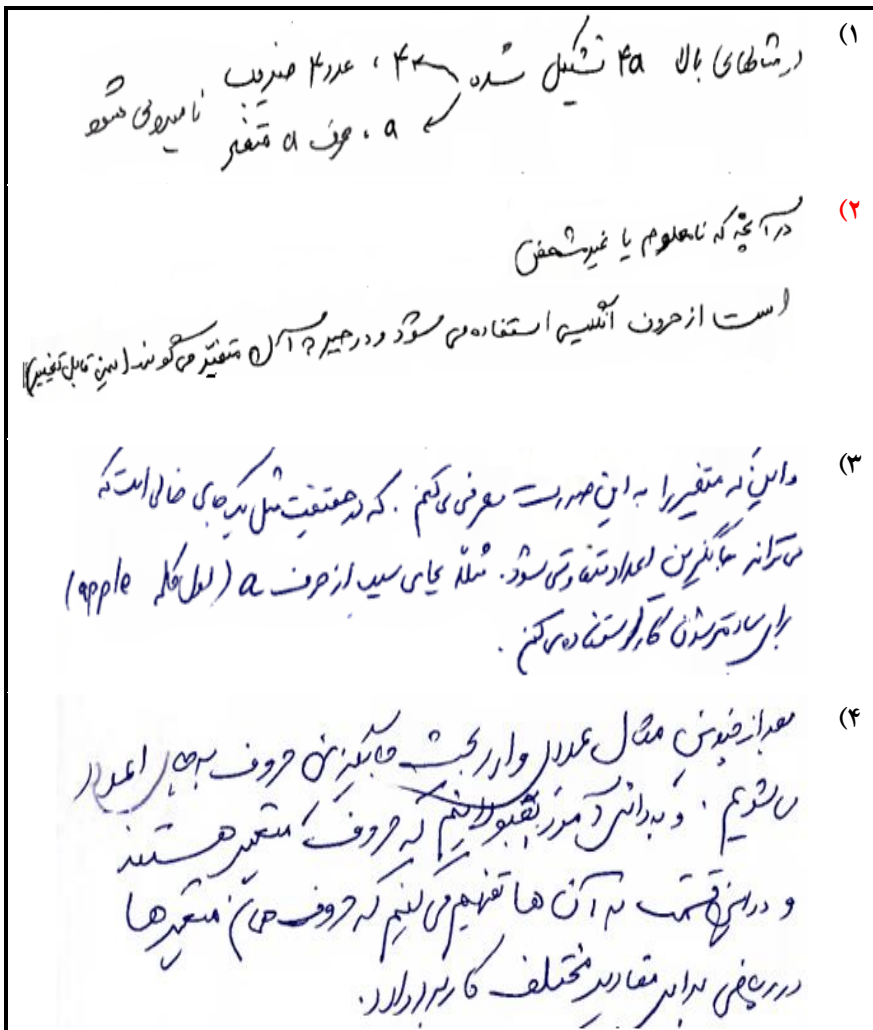 ۱)
در مثالهای بالا 4a تشکیل شده ۴ ، عدد ۴ ضریب
a ، حرف a متغیر نامیده می شود
۲)
در آنچه که نامعلوم یا غیرمشخص
است از حروف انگلیسی استفاده می شود و در جبر به آن متغیّر می گویند (یعنی قابل تغییر)
۳)
واین که متغیر را به این صورت معرفی می کنم . که در حقیقت مثل یک جای خالی است که
می تواند جایگزین اعداد متفاوتی شود. مثلاً بجای سیب از حرف a (اول کلمه apple)
برای ساده تر شدن کار استفاده می کنم .
۴)
بعد از چندین مثال عددی وارد بحث جایگزینی حروف به جای اعداد
می شویم . و به دانش آموز بقبولانیم که حروف متغیر هستند
و در این قسمت به آن ها تفهیم می کنیم که حروف متغیرها
در ریاضی برای مقادیر مختلف کاربرد دارد.